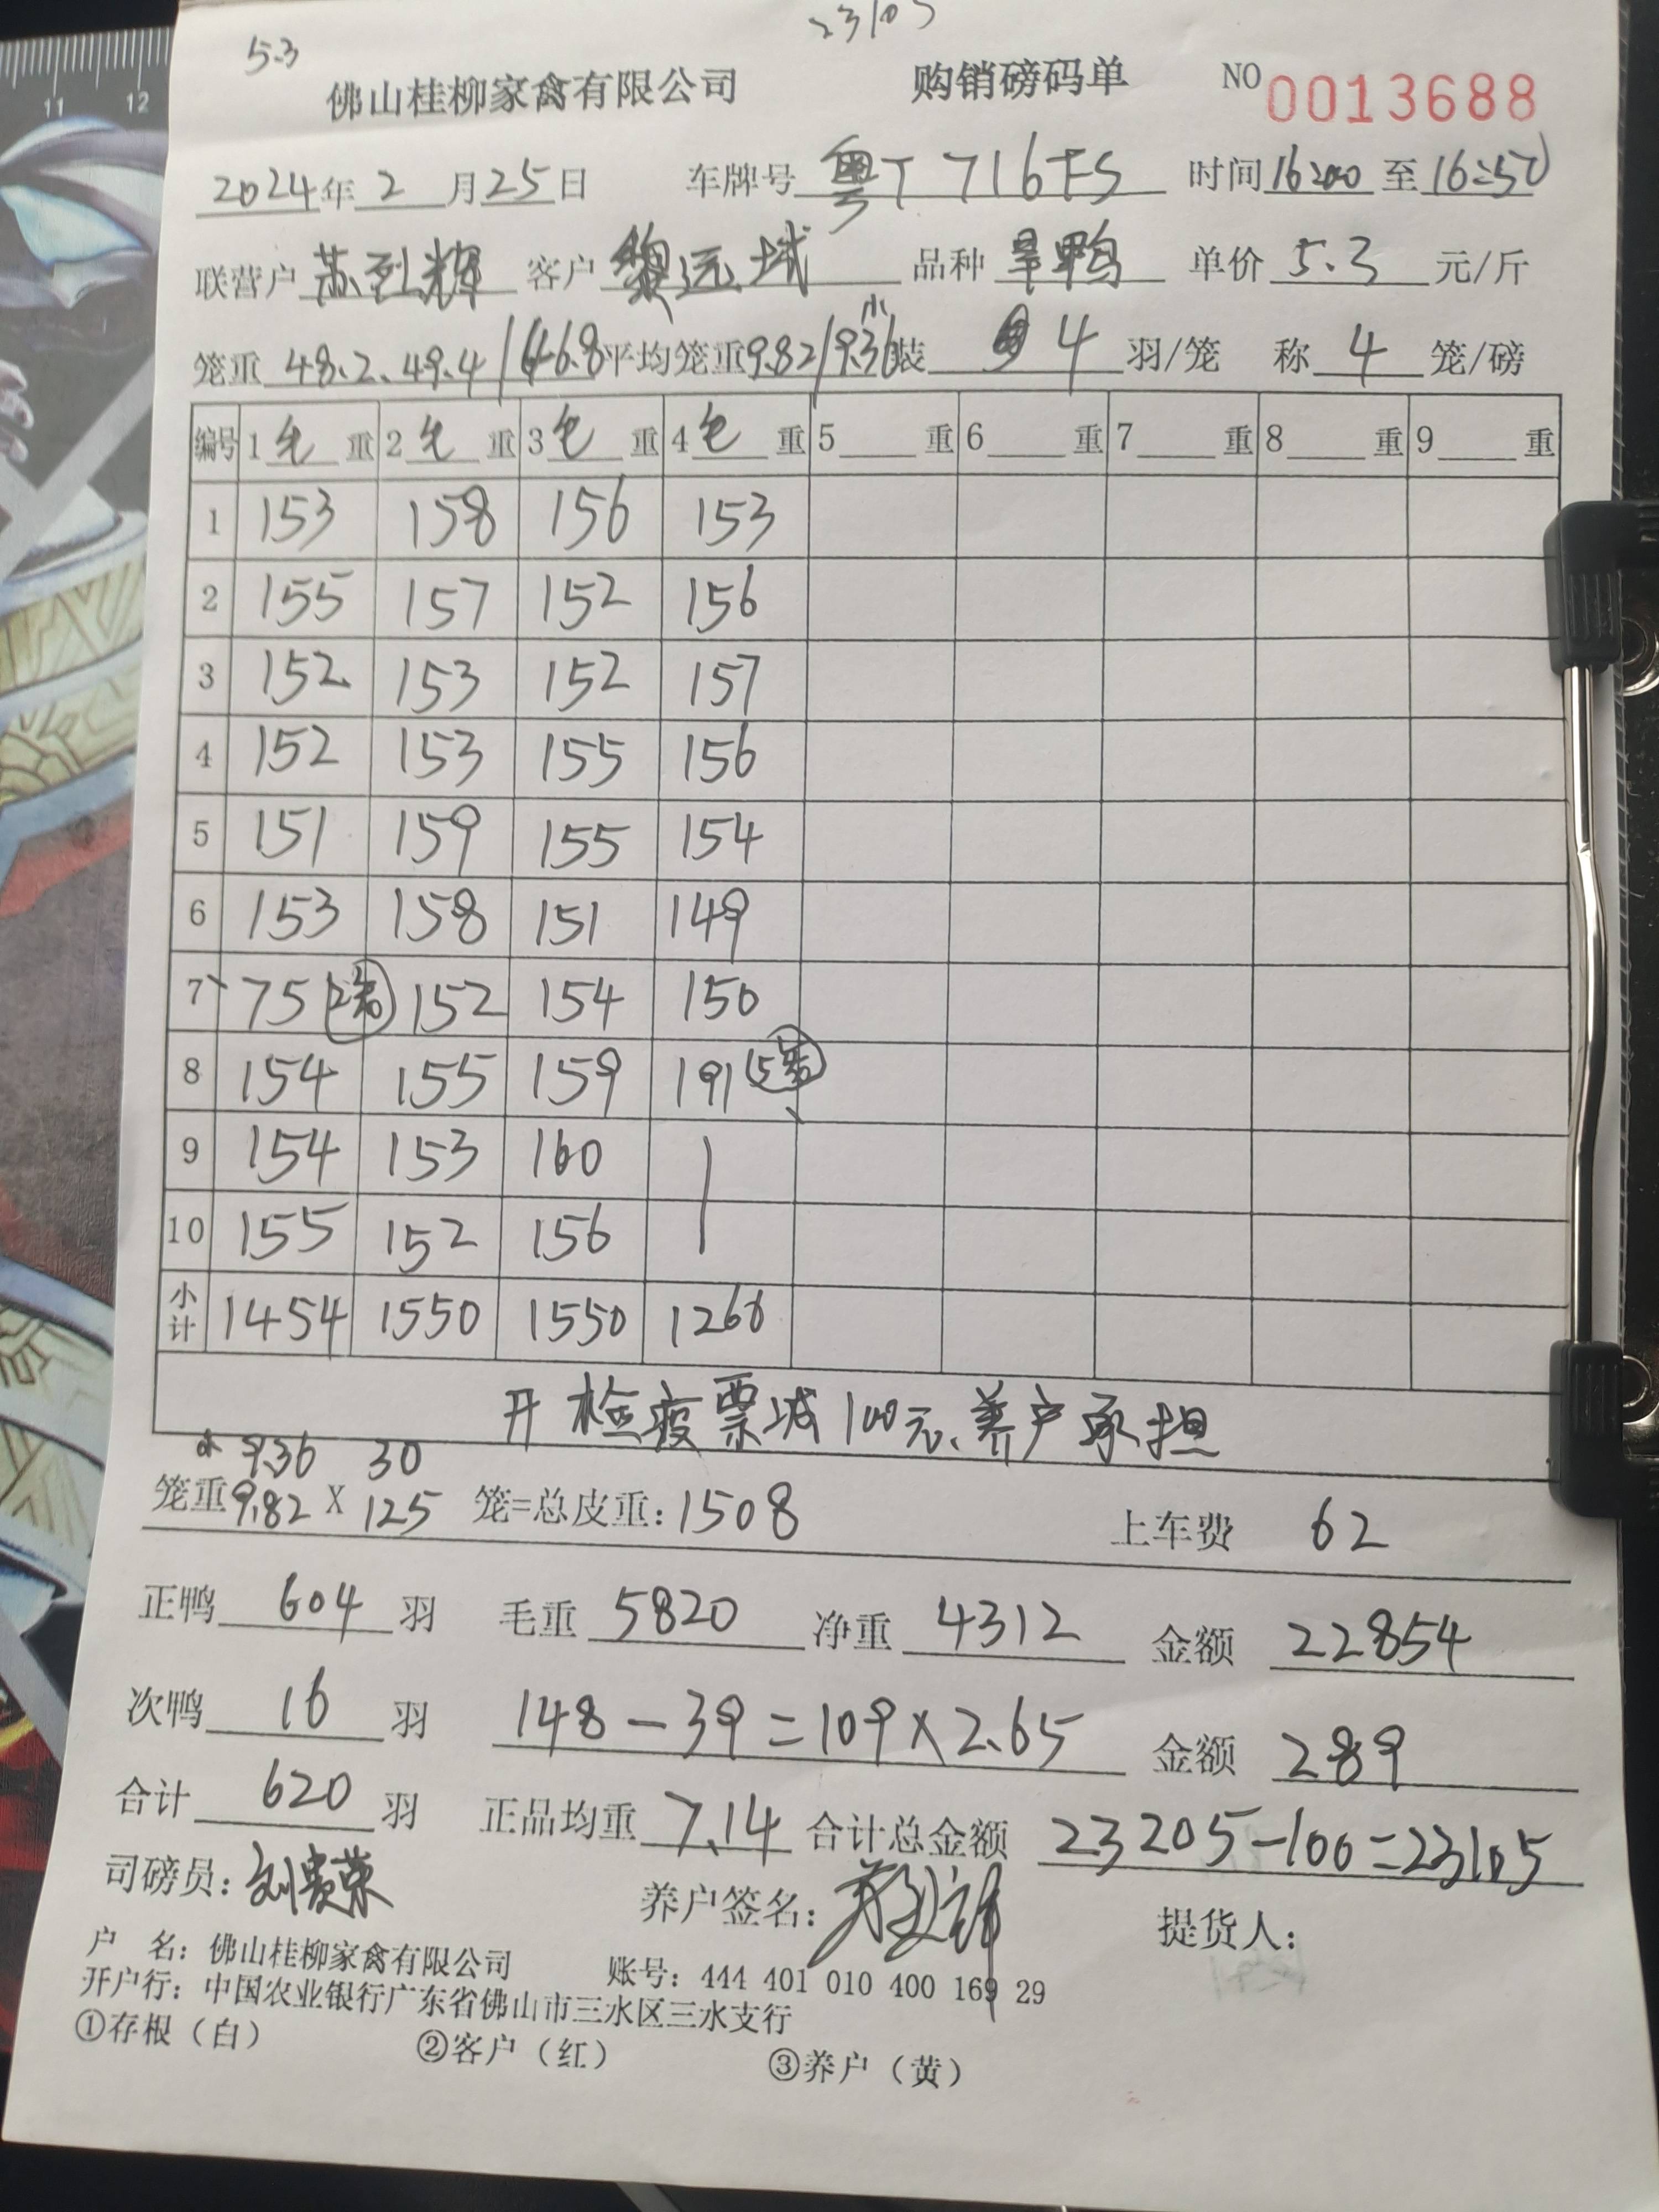 5.3 23105
佛山桂柳家禽有限公司 购销磅码单 NO 0013688
2024年2月25日 车牌号 粤T 716FS 时间 16:00 至 16:50
联营户 苏烈辉 客户 黎远城 品种 旱鸭 单价 5.3 元/斤
笼重 48.2、49.4/46.8 平均笼重 9.82/9.36小 装 4 羽/笼 称 4 笼/磅
编号 1毛重 2毛重 3毛重 4毛重 5重 6重 7重 8重 9重
1 153 158 156 153
2 155 157 152 156
3 152 153 152 157
4 152 153 155 156
5 151 159 155 154
6 153 158 151 149
7 75 (2笼) 152 154 150
8 154 155 159 191 (5笼)
9 154 153 160
10 155 152 156
小计 1454 1550 1550 1266
开检疫票减100元、养户承担
小 9.36 30
笼重 9.82 X 125 笼=总皮重: 1508 上车费 62
正鸭 604 羽 毛重 5820 净重 4312 金额 22854
次鸭 16 羽 148-39=109×2.65 金额 289
合计 620 羽 正品均重 7.14 合计总金额 23205-100=23105
司磅员: 刘贵荣 养户签名: 提货人:
户 名: 佛山桂柳家禽有限公司 账号: 444 401 010 400 169 29
开户行: 中国农业银行广东省佛山市三水区三水支行
①存根(白) ②客户(红) ③养户(黄)
11 12